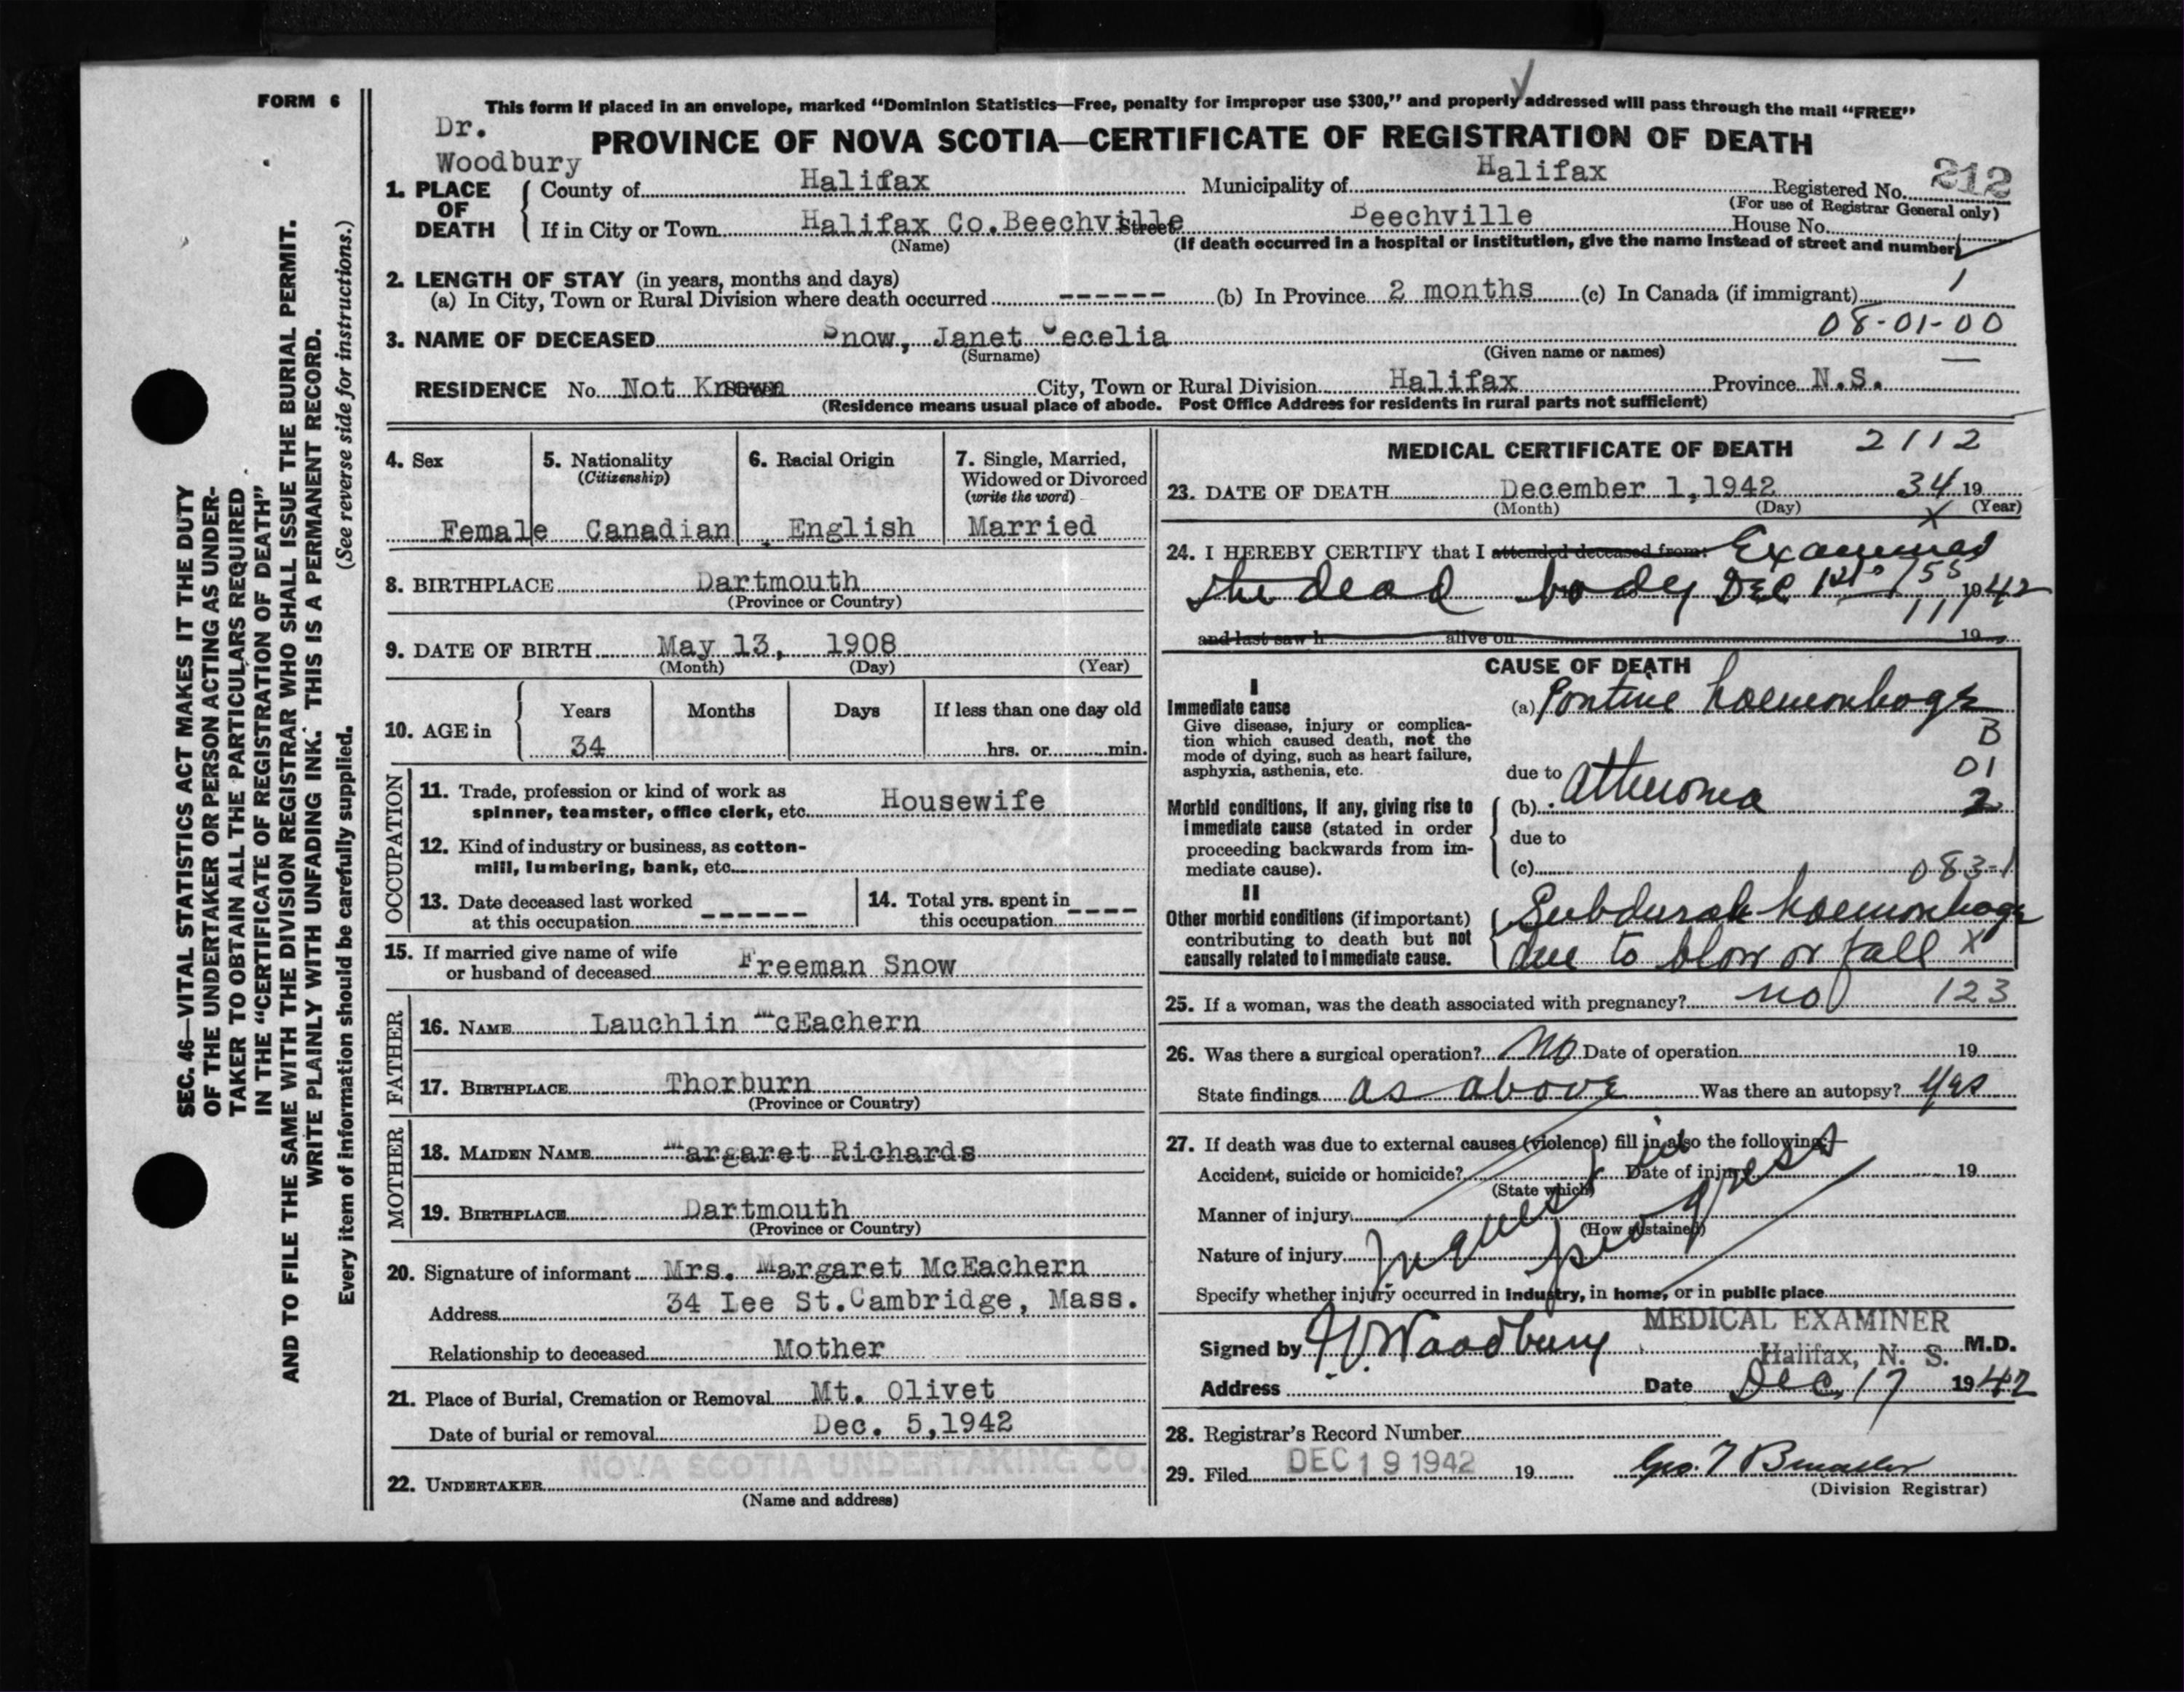 FORM 6
This form if placed in an envelope, marked "Dominion Statistics—Free, penalty for improper use $300," and properly addressed will pass through the mail "FREE"
Dr.
Woodbury
PROVINCE OF NOVA SCOTIA—CERTIFICATE OF REGISTRATION OF DEATH
1. PLACE OF DEATH
County of Halifax Municipality of Halifax Registered No. 212
(For use of Registrar General only)
If in City or Town Halifax Co. Beechville Street Beechville House No.
(Name) (If death occurred in a hospital or institution, give the name instead of street and number)
2. LENGTH OF STAY (in years, months and days)
(a) In City, Town or Rural Division where death occurred ------ (b) In Province 2 months (c) In Canada (if immigrant) 1
08-01-00
3. NAME OF DECEASED Snow, Janet Cecelia
(Surname) (Given name or names)
RESIDENCE No. Not Known City, Town or Rural Division Halifax Province N.S.
(Residence means usual place of abode. Post Office Address for residents in rural parts not sufficient)
4. Sex
Female
5. Nationality
(Citizenship)
Canadian
6. Racial Origin
English
7. Single, Married,
Widowed or Divorced
(write the word)
Married
8. BIRTHPLACE Dartmouth
(Province or Country)
9. DATE OF BIRTH May 13, 1908
(Month) (Day) (Year)
10. AGE in
Years Months Days If less than one day old
34 hrs. or min.
OCCUPATION
11. Trade, profession or kind of work as
spinner, teamster, office clerk, etc. Housewife
12. Kind of industry or business, as cotton-
mill, lumbering, bank, etc.
13. Date deceased last worked
at this occupation ------
14. Total yrs. spent in
this occupation ----
15. If married give name of wife
or husband of deceased Freeman Snow
FATHER
16. NAME Lauchlin McEachern
17. BIRTHPLACE Thorburn
(Province or Country)
MOTHER
18. MAIDEN NAME Margaret Richards
19. BIRTHPLACE Dartmouth
(Province or Country)
20. Signature of informant Mrs. Margaret McEachern
Address 34 Lee St. Cambridge, Mass.
Relationship to deceased Mother
21. Place of Burial, Cremation or Removal Mt. Olivet
Date of burial or removal Dec. 5, 1942
NOVA SCOTIA UNDERTAKING CO.
22. UNDERTAKER
(Name and address)
MEDICAL CERTIFICATE OF DEATH 2112
23. DATE OF DEATH December 1, 1942 34 19
(Month) (Day) (Year)
X
24. I HEREBY CERTIFY that I attended deceased from: Examined
the dead body Dec 1st 1942
and last saw h alive on 19
CAUSE OF DEATH
I
Immediate cause
Give disease, injury or complica-
tion which caused death, not the
mode of dying, such as heart failure,
asphyxia, asthenia, etc.
(a) Pontine haemorrhage
B
due to
01
Morbid conditions, if any, giving rise to
immediate cause (stated in order
proceeding backwards from im-
mediate cause).
(b) atheroma
2
due to
(c) 083-1
II
Other morbid conditions (if important)
contributing to death but not
causally related to immediate cause.
Subdural haemorrhage
due to blow or fall X
25. If a woman, was the death associated with pregnancy? no 123
26. Was there a surgical operation? No Date of operation 19
State findings as above Was there an autopsy? Yes
27. If death was due to external causes (violence) fill in also the following:—
Accident, suicide or homicide? Date of injury 19
(State which)
Manner of injury
(How sustained)
Nature of injury
Inquest in progress
Specify whether injury occurred in industry, in home, or in public place
MEDICAL EXAMINER
Halifax, N. S.
Signed by Woodbury M.D.
Address Date Dec 17 1942
28. Registrar's Record Number
29. Filed DEC 19 1942 19
(Division Registrar)
SEC. 46—VITAL STATISTICS ACT MAKES IT THE DUTY
OF THE UNDERTAKER OR PERSON ACTING AS UNDER-
TAKER TO OBTAIN ALL THE PARTICULARS REQUIRED
IN THE "CERTIFICATE OF REGISTRATION OF DEATH"
AND TO FILE THE SAME WITH THE DIVISION REGISTRAR WHO SHALL ISSUE THE BURIAL PERMIT.
WRITE PLAINLY WITH UNFADING INK. THIS IS A PERMANENT RECORD.
Every item of information should be carefully supplied. (See reverse side for instructions.)